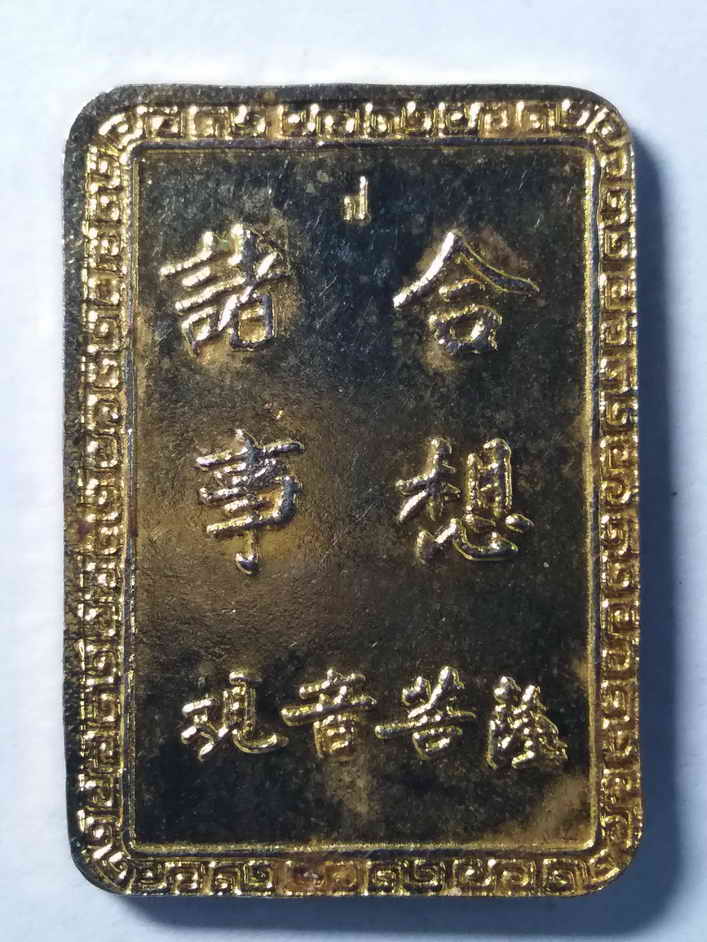 諸事
合想
現音菩薩